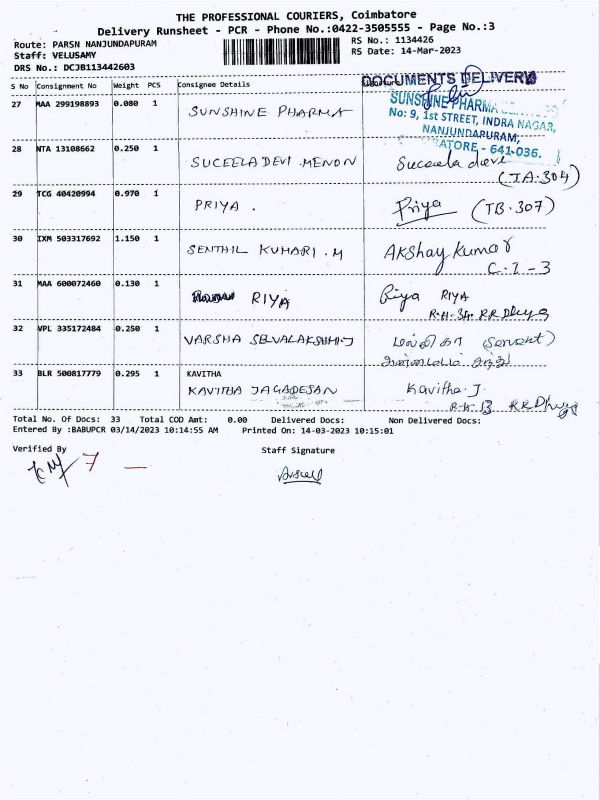 THE PROFESSIONAL COURIERS, Coimbatore
Delivery Runsheet - PCR - Phone No.:0422-3505555 - Page No.:3
Route: PARSN NANJUNDAPURAM
Staff: VELUSAMY
DRS No.: DCJB113442603
RS No.: 1134426
RS Date: 14-Mar-2023
S No Consignment No Weight PCS Consignee Details Signature
DOCUMENTS DELIVERY
27 MAA 299198893 0.080 1 SUNSHINE PHARMA
SUNSHINE PHARMA
No: 9, 1st STREET, INDRA NAGAR,
NANJUNDAPURAM,
ATORE - 641-036.
28 NTA 13108662 0.250 1 SUCEELA DEVI MENON Suceela devi
(TA.304)
29 TCG 40420994 0.970 1 PRIYA . Priya (TB.307)
30 IXM 503317692 1.150 1 SENTHIL KUMARI . M Akshay Kumar
C-I-3
31 MAA 600072460 0.130 1 RIYA Riya RIYA
R.H.34. RR Dhya
32 VPL 335172484 0.250 1 VARSHA SELVALAKSHMI.J மல்லிகா (Servent)
33 BLR 500817779 0.295 1 KAVITHA
KAVITHA JAGADESAN Kavitha.J
R.H. 13 RR Dhya
Total No. Of Docs: 33 Total COD Amt: 0.00 Delivered Docs: Non Delivered Docs:
Entered By :BABUPCR 03/14/2023 10:14:55 AM Printed On: 14-03-2023 10:15:01
Verified By Staff Signature
7 —